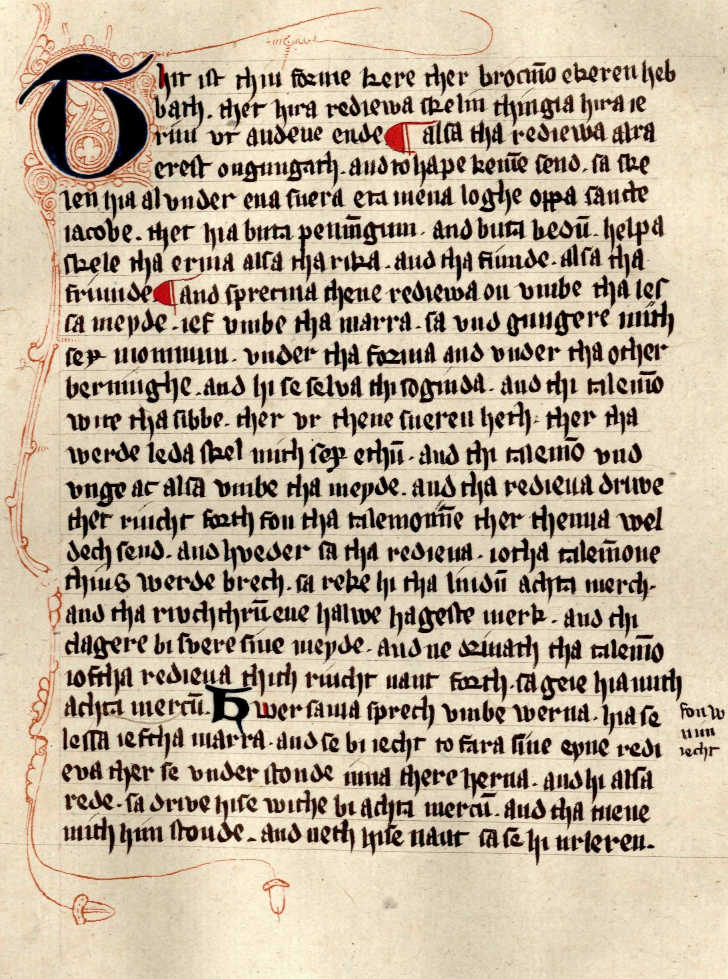 Thit ist thiu forme kere ther brocmo̅ ekeren heb
bath. thet hira rediewa skelin thingia hira ie
rim vt and eue ende ¶ alsa tha rediewa alra
erest on gungath. and to hape keme̅ send. sa ske
len hia al vnder ena suera eta mena loghe oppa sancte
iacobe. thet hia buta penni̅gum. and buta bedu̅. helpa
skele tha erma alsa tha rika. and tha fiunde. alsa tha
friunde ¶ and sprecma thene rediewa on vmbe tha les
sa meyde. ief vmbe tha marra. sa vnd gungere mith
sex monnum. vnder tha forma and vnder tha other
berninghe. and hi se selva thi soginda. and thi talemo̅
wite tha sibbe. ther vr thene sueren heth. ther tha
werde leda skel mith sex ethu̅. and thi talemo̅ vnd
vnge ac alsa vmbe tha meyde. and tha redieua driwe
thet riucht forth fon tha talemonne̅ ther thenna wel
dech send. and hveder sa tha redieua. iotha talemo̅ne
thius werde brech. sa reke hi tha liudu̅ achta merch.
and tha riuchthru̅ ene halwe hageste merk. and thi
clagere bi svere sine meyde. and ne driuath tha talemo̅
ioftha redieua thith riucht naut forth. sa geie hia mith
achta mercu̅. Hwersama sprech vmbe werna. hia se
lessa ieftha marra. and se bi iecht to fara sine eyne redi
eva ther se vnder stonde nina there herna. and hi alsa
rede. sa drive hise withe bi achta mercu̅. and tha mene
mith him stonde. and neth hise naut sa se hi urleren.
fon w
nun
iecht